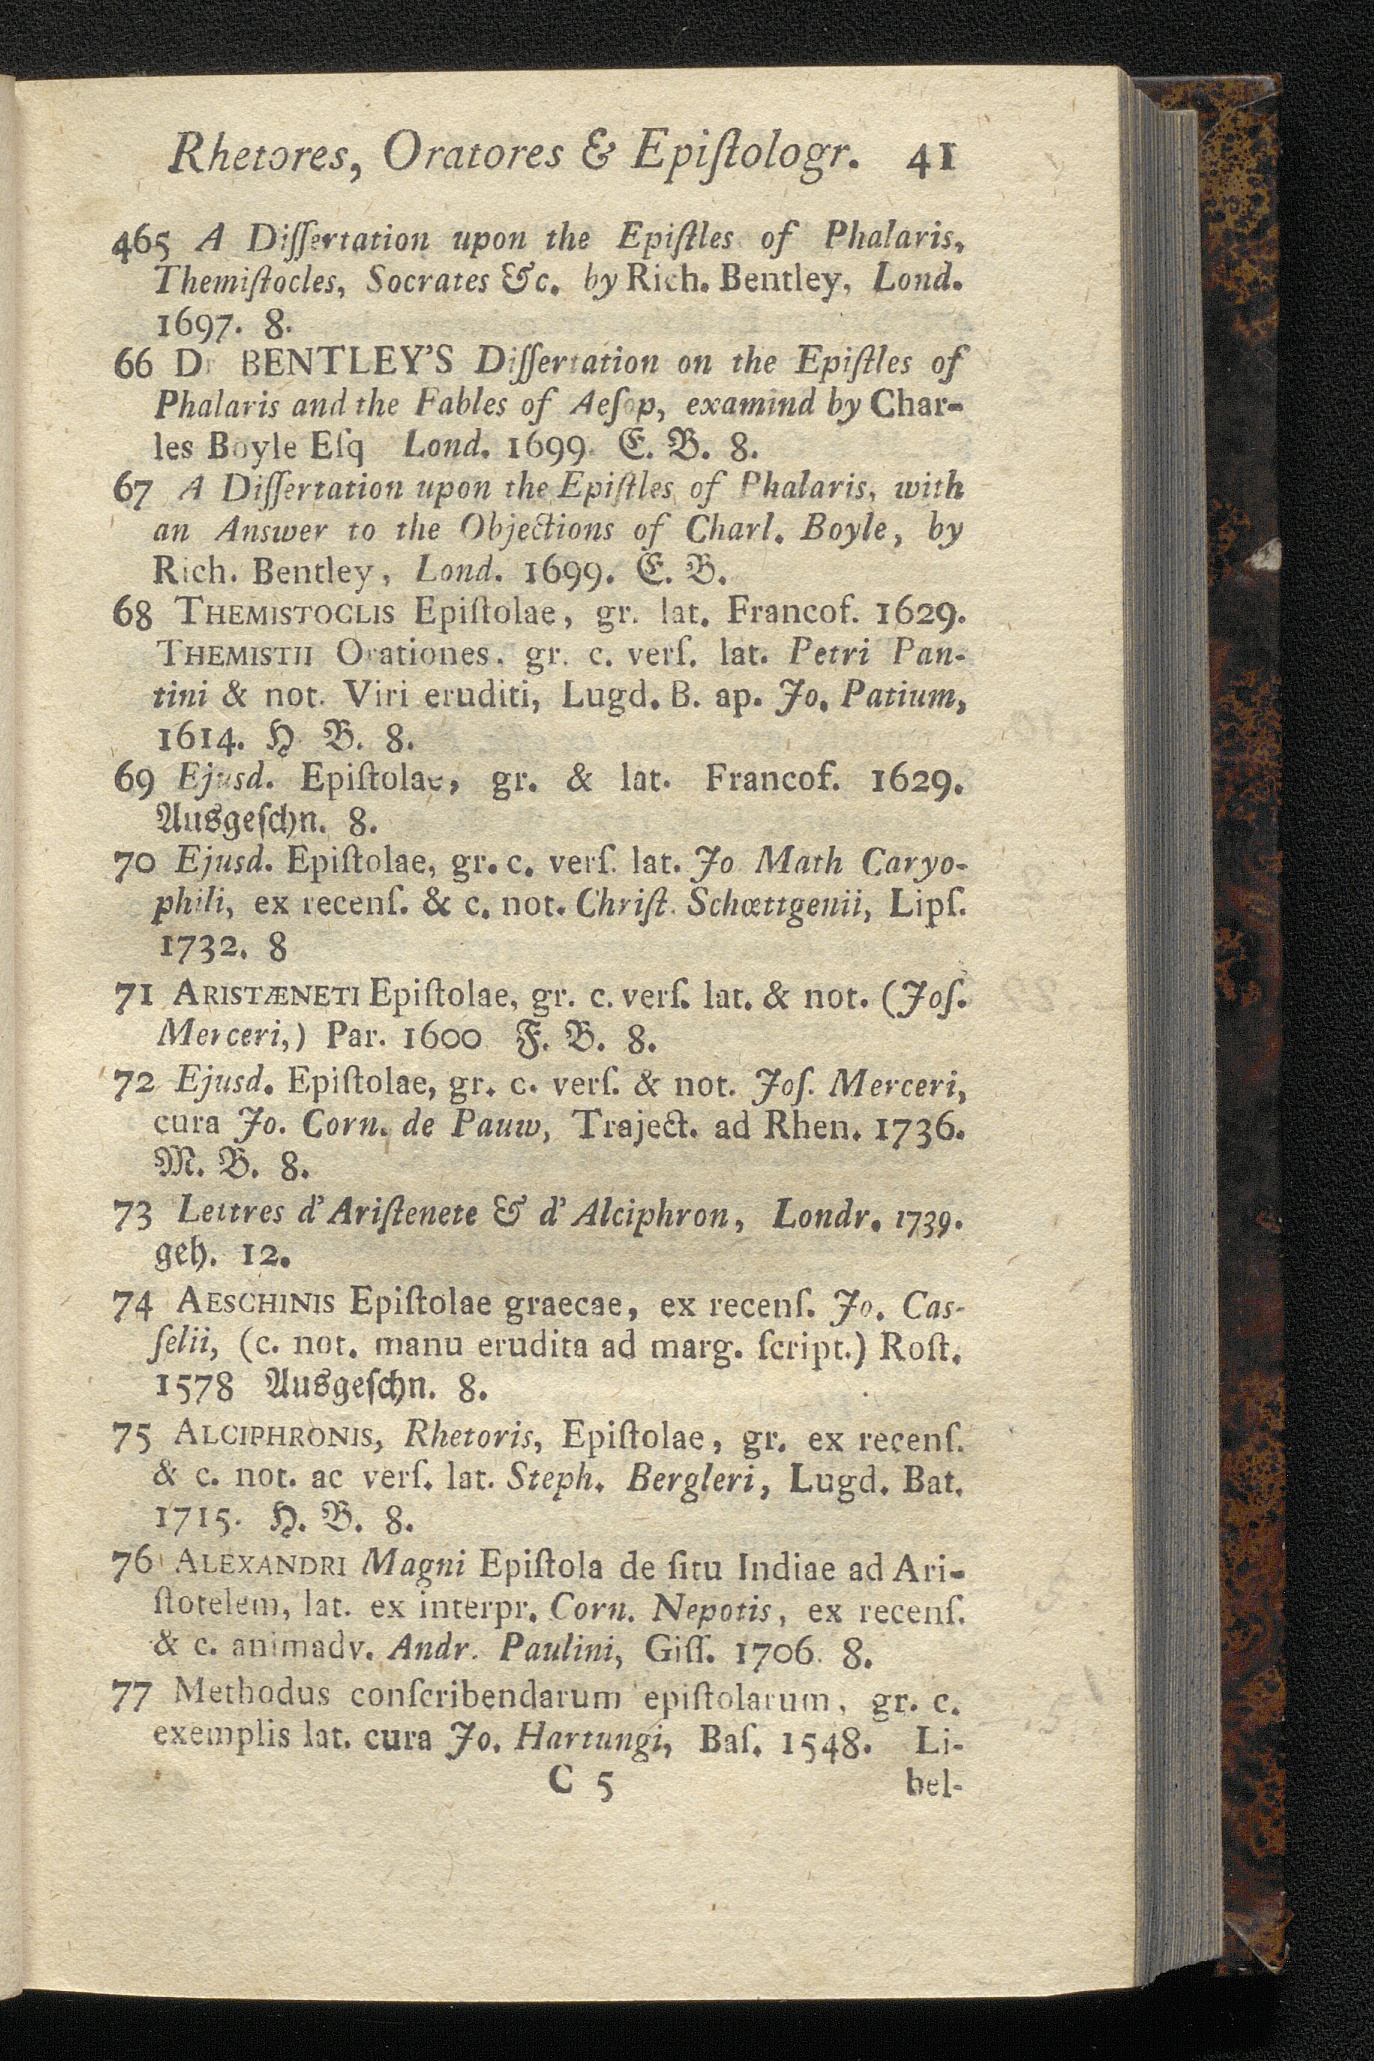 Rhetores, Oratores & Epiſtologr. 41
465 A Diſſertation upon the Epiſtles of Phalaris,
Themiſtocles, Socrates &c. by Rich. Bentley, Lond.
1697. 8.
66 Dr BENTLEY'S Diſſertation on the Epiſtles of
Phalaris and the Fables of Aeſop, examind by Char-
les Boyle Eſq Lond. 1699. E. B. 8.
67 A Diſſertation upon the Epiſtles of Phalaris, with
an Answer to the Objections of Charl. Boyle, by
Rich. Bentley, Lond. 1699. E. B.
68 THEMISTOCLIS Epiſtolae, gr. lat. Francof. 1629.
THEMISTII Orationes, gr. c. verſ. lat. Petri Pan-
tini & not. Viri eruditi, Lugd. B. ap. Jo. Patium,
1614. H. B. 8.
69 Ejusd. Epiſtolae, gr. & lat. Francof. 1629.
Ausgeſchn. 8.
70 Ejusd. Epiſtolae, gr. c. verſ. lat. Jo Math Caryo-
phili, ex recenſ. & c. not. Chriſt. Schœttgenii, Lipſ.
1732. 8
71 ARISTÆNETI Epiſtolae, gr. c. verſ. lat. & not. (Joſ.
Merceri,) Par. 1600 F. B. 8.
72 Ejusd. Epiſtolae, gr. c. verſ. & not. Joſ. Merceri,
cura Jo. Corn. de Pauw, Traject. ad Rhen. 1736.
M. B. 8.
73 Lettres d'Ariſtenete & d'Alciphron, Londr. 1739.
geh. 12.
74 AESCHINIS Epiſtolae graecae, ex recenſ. Jo. Cas-
ſelii, (c. not. manu erudita ad marg. ſcript.) Roſt.
1578 Ausgeſchn. 8.
75 ALCIPHRONIS, Rhetoris, Epiſtolae, gr. ex recenſ.
& c. not. ac verſ. lat. Steph. Bergleri, Lugd. Bat.
1715. H. B. 8.
76 ALEXANDRI Magni Epiſtola de ſitu Indiae ad Ari-
ſtotelem, lat. ex interpr. Corn. Nepotis, ex recenſ.
& c. animadv. Andr. Paulini, Giſſ. 1706. 8.
77 Methodus conſcribendarum epiſtolarum, gr. c.
exemplis lat. cura Jo. Hartungi, Baſ. 1548. Li-
C 5 bel-